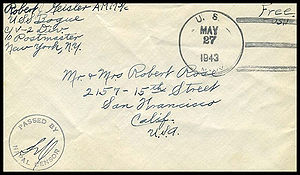 Robert Geister AMM1/c
U.S.S.
V-2 Div.
℅ Postmaster
New York, N.Y.
U. S.
MAY
27
1943
NAVY
Free
Mr. & Mrs Robert Rose
2157 - 15th Street
San Francisco
Calif.
U.S.A.
PASSED BY
NAVAL CENSOR